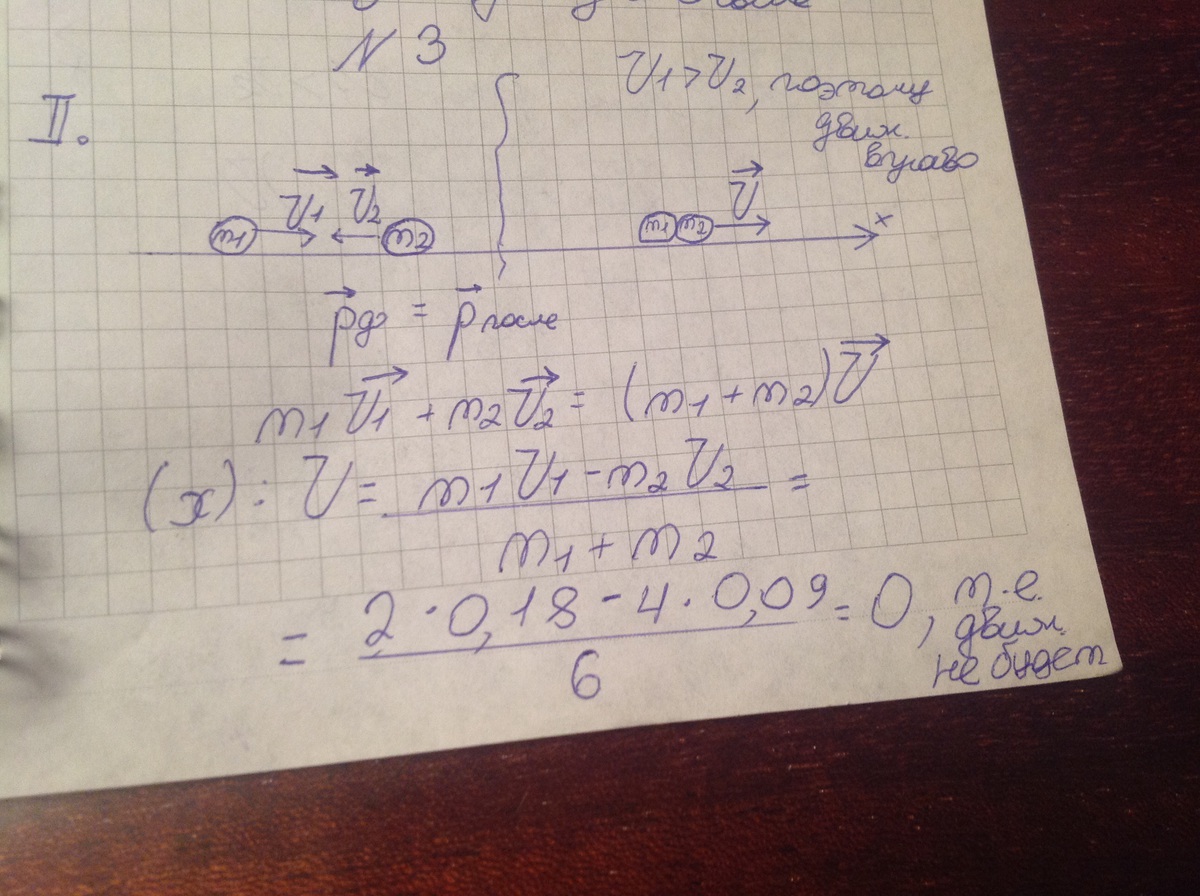 N 3
II.
V1 > V2, поэтому
движ.
вправо
V1 V2
m1 m2
m1 m2 V
x
pдо = pпосле
m1V1 + m2V2 = (m1 + m2)V
(x): V = (m1V1 - m2V2) / (m1 + m2) =
= (2 · 0,18 - 4 · 0,09) / 6 = 0, т.е.
движ.
не будет